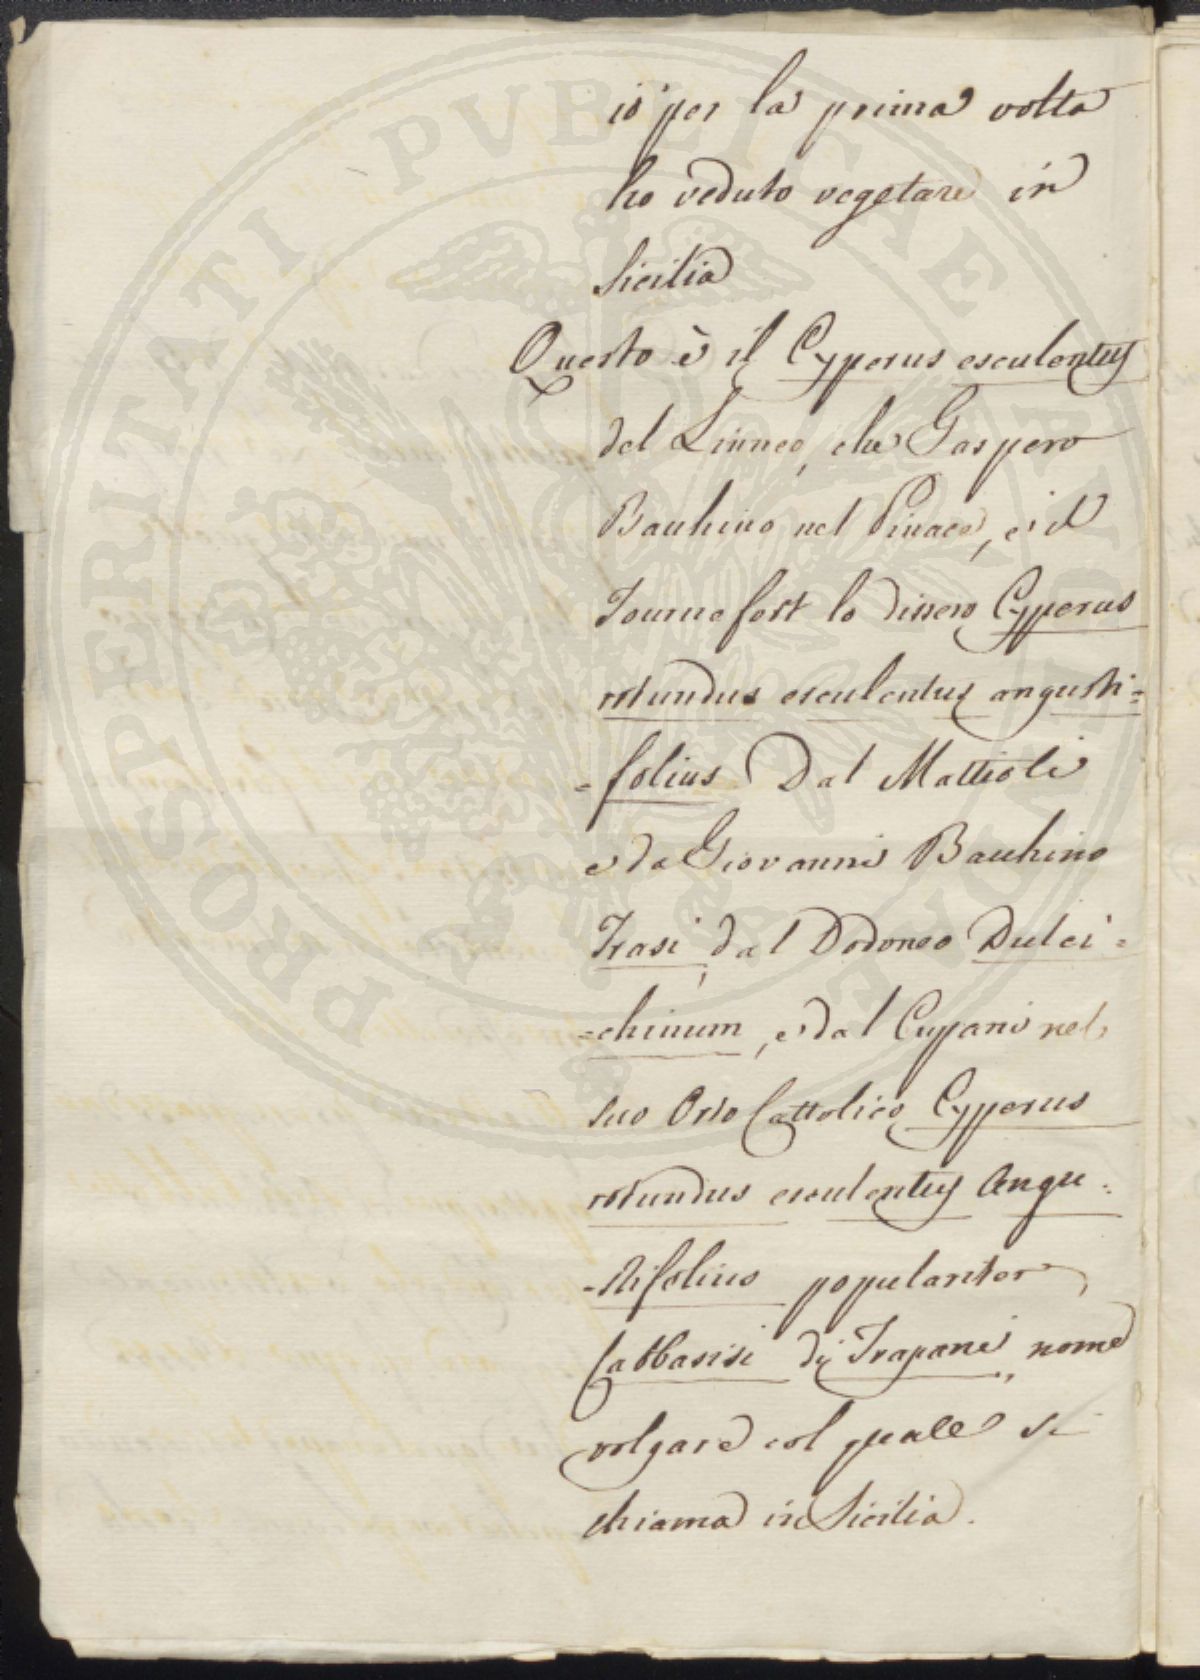 io per la prima volta
ho veduto vegetare in
Sicilia
Questo è il Cyperus esculentus
del Linneo, che Gaspero
Bauhino nel Pinace, e il
Tournefort lo dissero Cyperus
rotundus esculentus angusti=
=folius. Dal Mattioli
e da Giovanni Bauhino
Trasi, dal Dodoneo Dulci=
=chinum, e dal Cupani nel
suo Orto Cattolico Cyperus
rotundus esculentus Angu=
=stifolius populariter
Cabbasisi di Trapani, nome
volgare col quale si
chiama in Sicilia.
PROSPERITATI PVBLICAE AVGENDAE